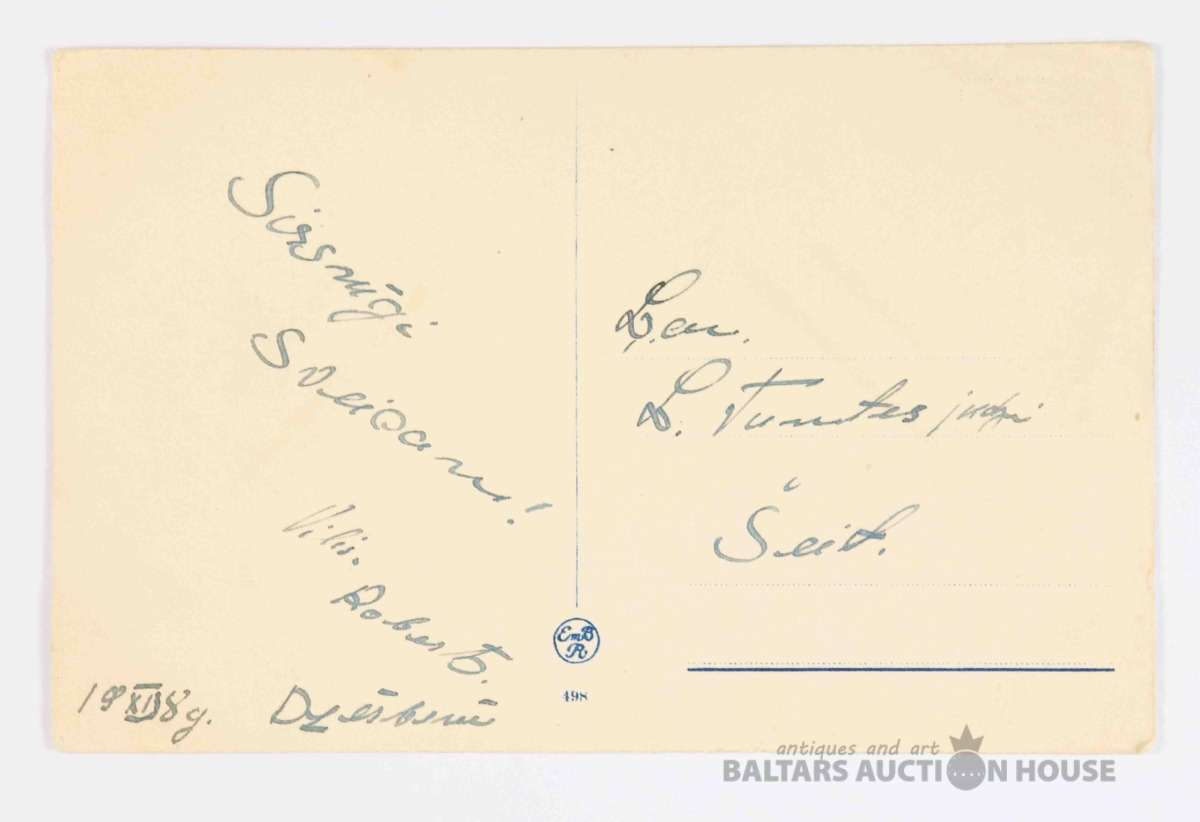 Sirsnīgi
Sveicam!
Vilis.
Robert.
19 XII 38 g. Dzērbenē
L. Tumtes
Šeit.
EmB
R
498
antiques and art
BALTARS AUCTION HOUSE